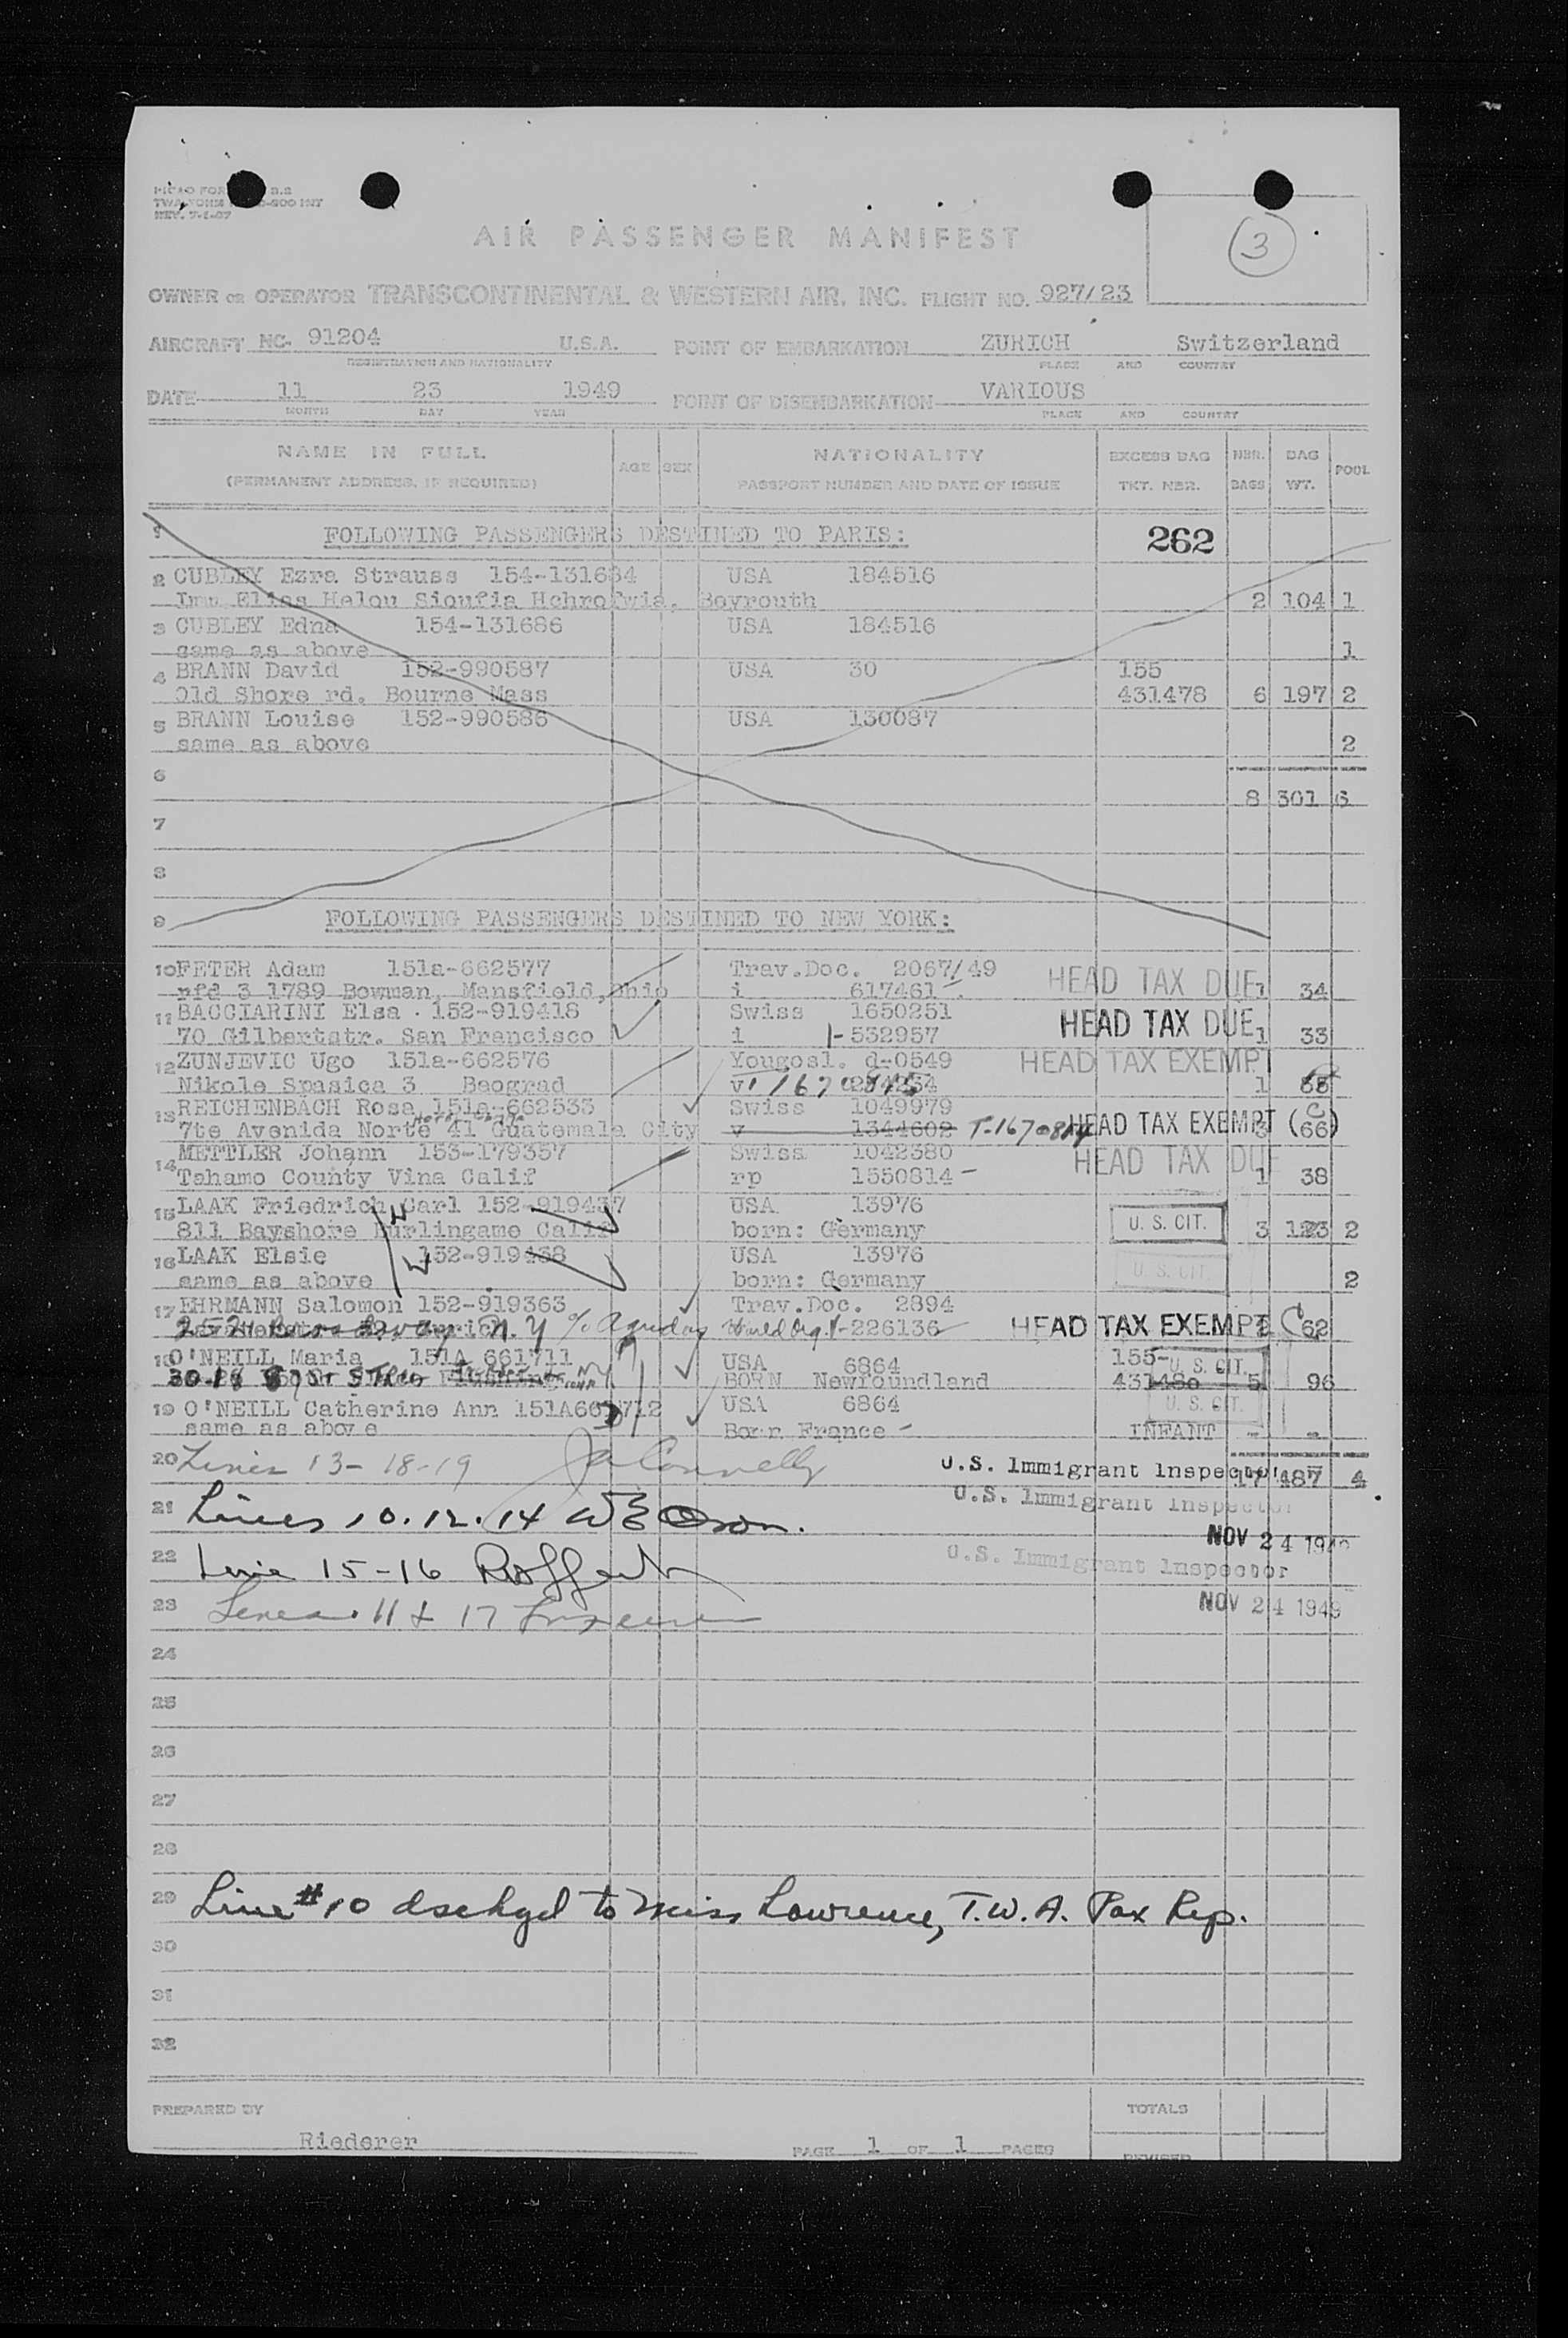 REV. 7-1-47
AIR PASSENGER MANIFEST
3
OWNER OR OPERATOR TRANSCONTINENTAL & WESTERN AIR, INC. FLIGHT NO. 927/23
AIRCRAFT NC- 91204 U.S.A. POINT OF EMBARKATION ZURICH Switzerland
REGISTRATION AND NATIONALITY PLACE AND COUNTRY
DATE 11 23 1949 POINT OF DISEMBARKATION VARIOUS
MONTH DAY YEAR PLACE AND COUNTRY
NAME IN FULL AGE SEX NATIONALITY EXCESS BAG NBR. BAG POOL
(PERMANENT ADDRESS, IF REQUIRED) PASSPORT NUMBER AND DATE OF ISSUE TKT. NBR. BAGS WT.
1 FOLLOWING PASSENGERS DESTINED TO PARIS: 262
2 CUBLEY Ezra Strauss 154-131684 USA 184516
Imm Elias Helou Sioufia Beyrouth 2 104 1
3 CUBLEY Edna 154-131686 USA 184516
same as above 1
4 BRANN David 152-990587 USA 30 155
Old Shore rd. Bourne Mass 431478 6 197 2
5 BRANN Louise 152-990586 USA 130087
same as above 2
6
8 301 6
7
8
9 FOLLOWING PASSENGERS DESTINED TO NEW YORK:
10 FETER Adam 151a-662577 Trav.Doc. 2067/49 HEAD TAX DUE
rfd 3 1789 Bowman, Mansfield, Ohio i 617461 1 34
11 BACCIARINI Elsa 152-919418 Swiss 1650251 HEAD TAX DUE
70 Gilbertstr. San Francisco i 1-532957 1 33
12 ZUNJEVIC Ugo 151a-662576 Yougosl. d-0549 HEAD TAX EXEMPT
Nikole Spasica 3 Beograd v 1
13 REICHENBACH Rosa 151a-662533 Swiss 1049979
7te Avenida Norte 41 Guatemala City v 1344602 HEAD TAX EXEMPT (C) 66
14 METTLER Johann 153-179357 Swiss 1042380 HEAD TAX DUE
Tehamo County Vina Calif rp 1550814 1 38
15 LAAK Friedrich Carl 152-919437 USA 13976 U. S. CIT.
811 Bayshore Burlingame Calif born: Germany 3 123 2
16 LAAK Elsie 152-919438 USA 13976 U. S. CIT.
same as above born: Germany 2
17 EHRMANN Salomon 152-919363 Trav.Doc. 2894
% Agudas World Org. V-226136 HEAD TAX EXEMPT C 62
18 O'NEILL Maria 151A 661711 USA 6864 155- U. S. CIT.
BORN Newfoundland 431480 5 96
19 O'NEILL Catherine Ann 151A661712 USA 6864 U. S. CIT.
same as above Born France INFANT - -
20 Lines 13-18-19 JA Connelly U.S. Immigrant Inspector 17 487 4
U.S. Immigrant Inspector
21 Lines 10.12.14
NOV 24 1949
22 Line 15-16 U.S. Immigrant Inspector
23 Lines 11 & 17 NOV 24 1949
24
25
26
27
28
29 Line #10 dschgd to Miss Lawrence, T.W.A. Pax Rep.
30
31
32
PREPARED BY Riederer PAGE 1 OF 1 PAGES TOTALS
REVISED